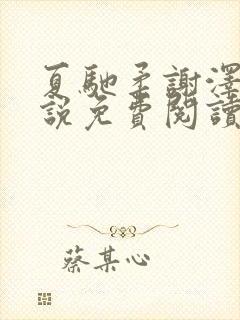 夏馳柔謝澤
說免費閱讀
蔡某心